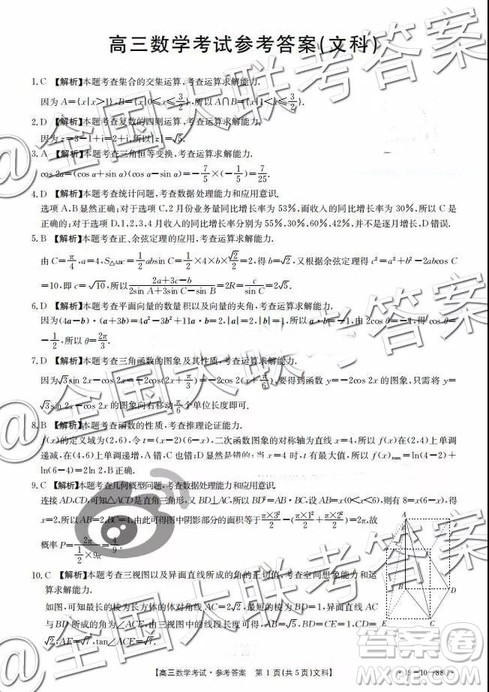 高三数学考试参考答案(文科)
1.C 【解析】本题考查集合的交集运算,考查运算求解能力.
因为A={x|x>1},B={x|0≤x≤3/2},所以A∩B={x|1<x≤3/2}.
2.D 【解析】本题考查复数的四则运算,考查运算求解能力.
因为z=3-1+i=2+i,所以|z|=√5.
3.A 【解析】本题考查三角恒等变换,考查运算求解能力.
cos2α=(cosα+sinα)(cosα-sinα)=-7/5×(-1/5)=7/25.
4.D 【解析】本题考查统计问题,考查数据处理能力和应用意识.
选项A,B显然正确;对于选项C,2月份业务量同比增长率为53%,而收入的同比增长率为30%,所以C是
正确的;对于选项D,1,2,3,4月收入的同比增长率分别为55%,30%,60%,42%,并不是逐月增长,D错误.
5.B 【解析】本题考查正、余弦定理的应用,考查运算求解能力.
由C=π/4,a=4,S△ABC=1/2absinC=1/2×4×b×√2/2=2,得b=√2,又根据余弦定理得c²=a²+b²-2abcosC
=10,即c=√10,所以(2a+3c-b)/(2sinA+3sinC-sinB)=2R=c/sinC=2√5.
6.D 【解析】本题考查平面向量的数量积以及向量的夹角,考查运算求解能力.
因为(4a-b)·(a+3b)=4a²-3b²+11a·b=2,|a|=2,|b|=1,所以a·b=-1,由2cosθ=-1,得cosθ=
-1/2,所以θ=2π/3.
7.D 【解析】本题考查三角函数的图象及其性质,考查运算求解能力.
因为√3sin2x-cos2x=-2cos(2x+π/3)=-2cos2(x+π/6),要得到函数y=-2cos2x的图象,只需将y=
√3sin2x-cos2x的图象向右移动π/6个单位长度即可.
8.B 【解析】本题考查函数的性质,考查推理论证能力.
f(x)的定义域为(2,6),令t=(x-2)(6-x),二次函数图象的对称轴为直线x=4,所以f(x)在(2,4)上单调
递减,在(4,6)上单调递增,A错,C也错,D显然是错的;当x=4时,t有最大值,所以f(x)max=ln(4-2)+
ln(6-4)=2ln2,B正确.
9.C 【解析】本题考查几何概型问题,考查数据处理能力和应用意识.
连接AD,CD,可知△ACD是直角三角形,又BD⊥AC,所以BD²=AB·BC,设AB=x(0<x<6),则有8=x(6-x),得
x=2,所以AB=2,BC=4,由此可得图中阴影部分的面积等于
概率P=2π/(1/2×9π)=4/9.
10.C 【解析】本题考查三视图以及异面直线所成的角的正切值,考查空间想象能力以及运
算求解能力.
如图,可知最长的棱为长方体的体对角线AC=2√2,最短的棱为BD=1,异面直线AC
与BD所成的角为∠ACE,由三视图中的线段长度可得,AB=√5,BD=1,CE=1,CD=
√2,AE=√7,tan∠ACE=√7.
【高三数学考试·参考答案 第1页(共5页)文科】
@全国大联考答案
@全国大联考答案
@全国大联考答案